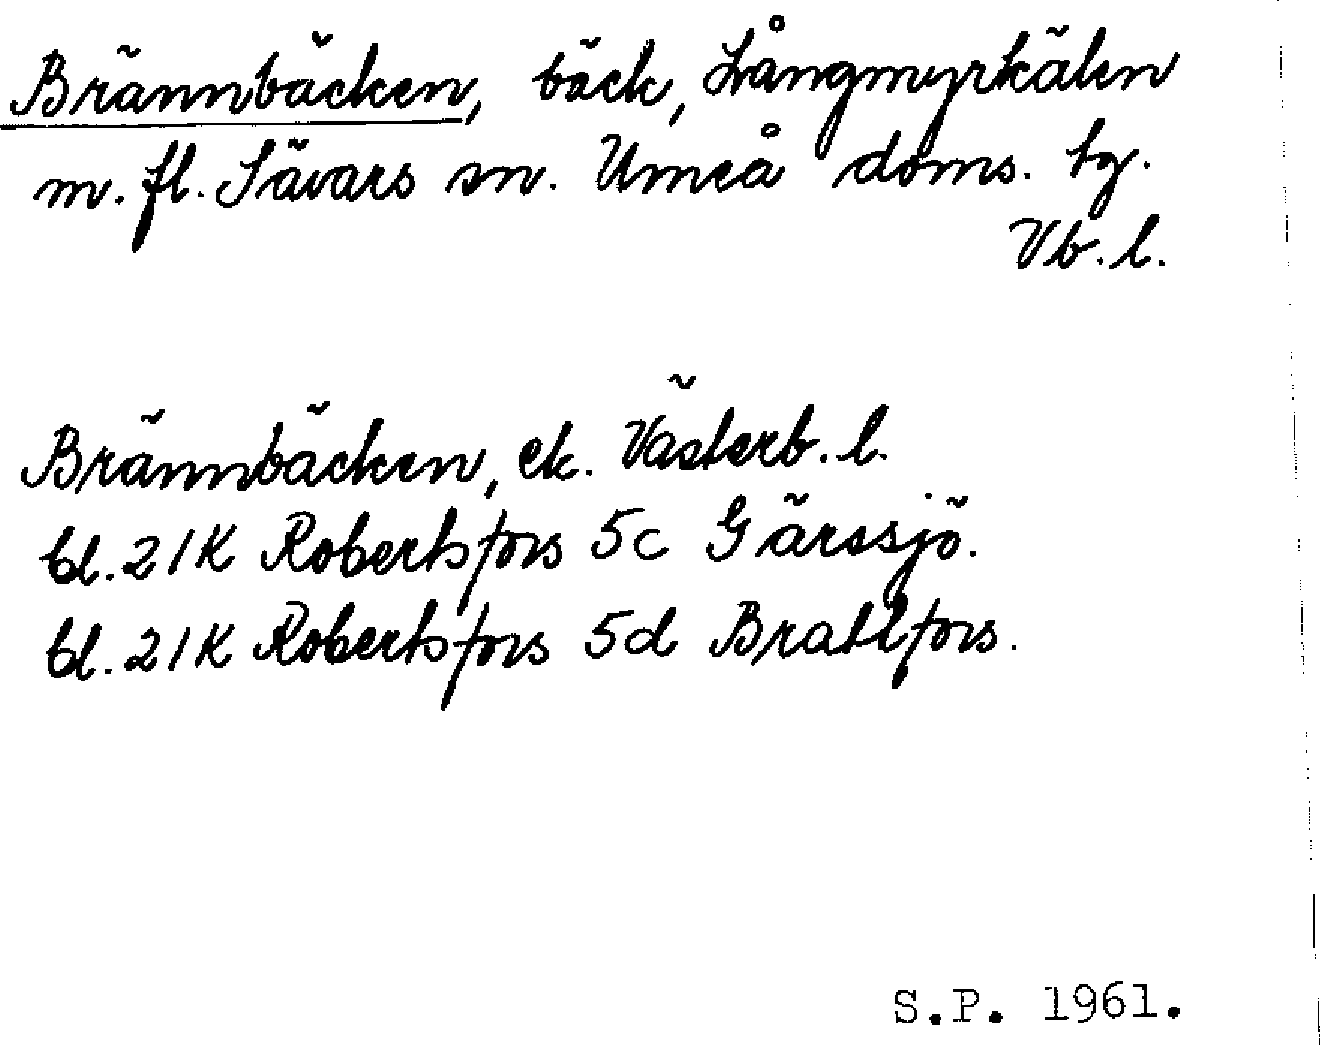 Brännbäcken, bäck, Långmyrkälen
m. fl. Sävars sn. Umeå doms. tg.
Vb. l.
Brännbäcken, ek. Västerb. l.
bl. 21K Robertsfors 5c Gärssjö.
bl. 21K Robertsfors 5d Brattfors.
S.P. 1961.